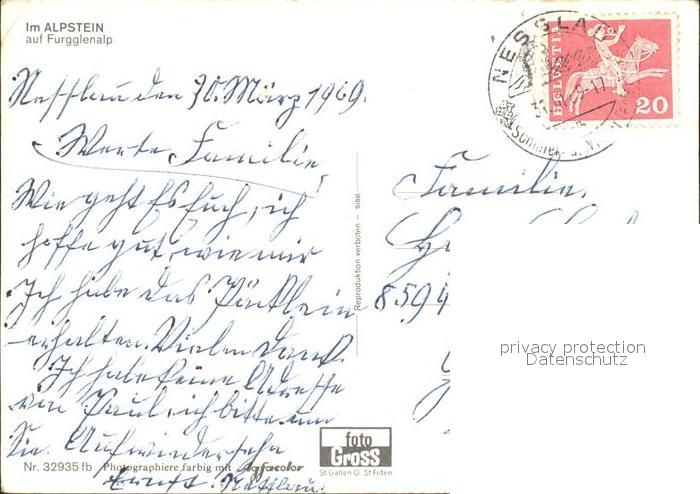 Im ALPSTEIN
auf Furgglenalp
Nesslau den 30. März 1969.
Werte Familie,
Wie geht Es Euch, ich
hoffe gut, wie mir
Ich habe das Päcklein
erhalten. Vielen Dank.
Ich habe keine Adresse
von Paul, ich bitte um
Sie. Aufwiedersehn
Ernst. Nesslau.
Nr. 32935 fb Photographiere farbig mit Agfacolor
foto
Gross
St. Gallen O. St. Fiden
Reproduktion verboten – sise
NESSLAU
Sommer-
HELVETIA
20
Familie
8594
privacy protection
Datenschutz